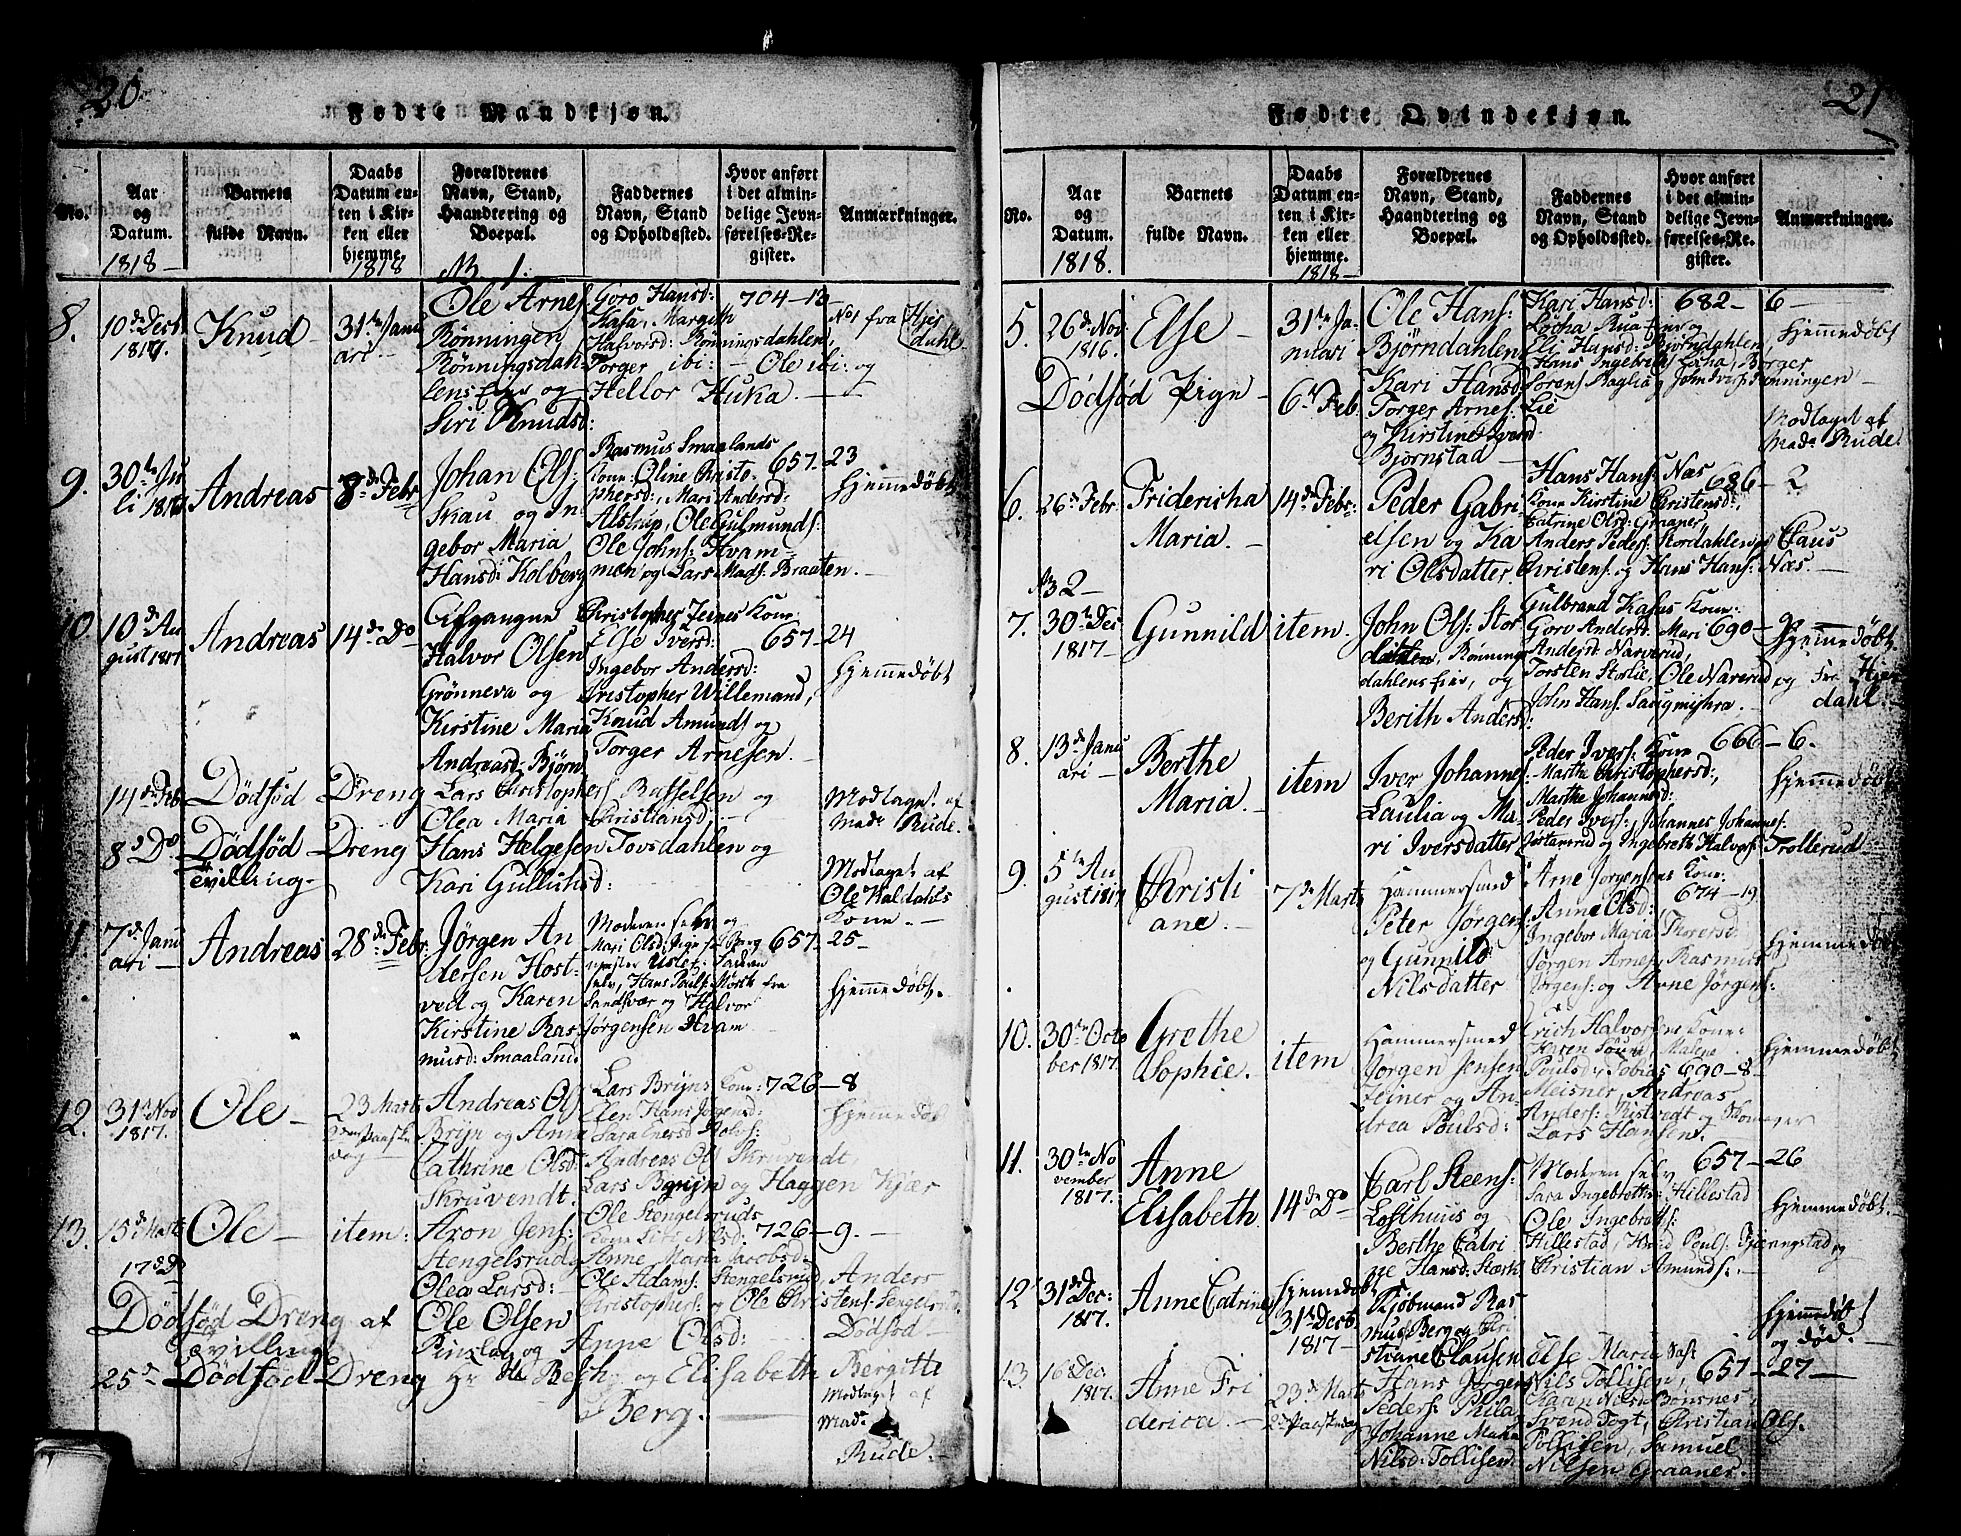 20.
Fødte Mandkjøn.
No.
Aar og Datum.
Barnets fulde Navn.
Daabs Datum enten i Kirken eller hjemme.
Forældrenes Navn, Stand, Haandtering og Boepæl.
Faddernes Navn, Stand og Opholdssted.
Hvor anført i det almindelige Jevnførelses-Register.
Anmærkninger.
1818 1818 No 1.
8. 10de Decb 1817. Knud 31te Januari
Ole Arnes:
Rønningen
Rønningsdah-
lens Eier og
Siri Knudsd:
Goro Hansd:
Kasa, Margith
Halvorsd: Rønningsdahlen,
Torger ibi: Ole ibi: og
Hellor Huka.
704-12
No 1 fra Hjer
dahl.
9. 30te Juli 1817 Andreas 8de Febr
Johan Ols:
Skau og In
gebor Maria
Hansd: Kolberg
Rasmus Smaalands
Kone: Oline Christo-
phersd:, Mari Andersd:
Alstrup, Ole Gulmunds:
Ole Johns: Hvam-
men og Lars Mads: Braaten.
657-23
Hjemmedøbt
10. 10de August 1817 Andreas 14de Do
Afgangne
Halvor Olsen
Grønneva og
Kirstine Maria
Andreasd: Bjørn
Christopher Zeines Kone
Else Iversd:
Ingebor Andersd:
Cristopher Willemand,
Knud Amunds og
Torger Arnesen.
657-24
Hjemmedøbt
14de Feb Dødfød Dreng Lars Christophers Basselsen og
Olea Maria Christiansd:
Modtaget af
Made Rude.
8de Do Dødfød Dreng Hans Helgesen Tovsdahlen og
Tvilling. Kari Gulluhsd:
Modtaget af
Ole Haldahls
Kone.
11. 7de Januari Andreas 28de Febr.
Jørgen An
dersen Host-
ved og Karen
Kirstine Ras
musd: Smaaland
Moderen selv og
Mari Olsd:
selv, Hans Pouls: Mørk fra
Sandsvær og Halvor
Jørgensen Hvam
657-25
Hjemmedøbt.
12. 31te Nov 1817. Ole 23 Marts
2den Paaske
dag
Andreas Ols
Brijn og Anne
Cathrine Olsd:
Skruvendt.
Lars Brijns Kone:
Elen Hans Jørgensd:
Andreas Ols Skruvendt,
Lars Brijn og Haggen Kjær
726-8
Hjemmedøbt
13. 15de Marts Ole item:
Aron Jens:
Stengelsrud og
Olea Larsd:
Ole Stengelsruds
Kone Siri Nilsd:
Anne Maria Jacobsd:
Ole Adams: Stengelsrud, Anders
Christophers: og Ole Christens: Sengelsrud.
726-9.
17de Do
Dødfød Dreng af Ole Olsen
Tvilling og Anne Olsd:
Dødfød
25de Dødfød Dreng Hr Ole Besh og Elisabeth Bergitte
Berg.
Modtaget af
Made
Rude.
21
Fødte Qvindekjøn.
No.
Aar og Datum.
Barnets fulde Navn.
Daabs Datum enten i Kirken eller hjemme.
Forældrenes Navn, Stand, Haandtering og Boepæl.
Faddernes Navn, Stand og Opholdssted.
Hvor anført i det almindelige Jevnførelses-Register.
Anmærkninger.
1818. 1818
5. 26de Nov: 1816. Else 31te Januari
Ole Hans:
Bjørndahlen
Kari Hansd
Kari Hansd:
Locha Rua Eier og
Eli Hansd: Bjørndahlen,
Hans Ingebreths Locha, Børger
Sorens Baglia og John Ivers: Rønningen
682-6
Hjemmedøbt
Dødfød Pign 6te Feb.
Torger Arnes: Lie
og Kirstine Iversd:
Bjørnstad
Modtaget af
Made Rude
6. 26de Febr Fridericha
Maria. 14de Febr:
Peder Gabri
elsen og Ka
ri Olsdatter
Hans Hans: Næs
Kone Kirstine Christensd:
Catrine Olsd: Graaner
Anders Peders: Stordahlen, Claus
Christens: og Hans Hans: Næs.
686-2
No 2
7. 30te Dec 1817 Gunnild item.
John Ols: Stor
dahlen, Rønnings
dahlens Eier, og
Berith Andersd:
Gulbrand Kasas Kone:
Goro Andersd: Mari
Andersd Narverud,
Torsten Storlie, Ole Narerud og
John Hans: Saugmishra.
690-9
Hjemmedøbt
Fra Hjer
dahl.
8. 13de Januari Berthe
Maria. item
Iver Johannes
Laulia og Ma-
ri Iversdatter
Peder Ivers: Kone
Marthe Christophersd:,
Marthe Johannesd:
Peder Ivers:, Johannes Johannes:
Justarerud og Ingebreth Halvors: Trollerud
666-6.
Hjemmedøbt
9. 5te August 1817 Christi
ane. 7de Marts
Hammersmed
Peter Jørgens
og Gunnild
Nilsdatter
Arne Jørgensens Kone:
Anne Olsd:
Ingebor Maria Thoresd:
Jørgen Arnes, Rasmus
Jørgens: og Arne Jørgens:
674-19
Hjemmedøbt
10. 30te October 1817. Grethe
Sophie. item
Hammersmed
Jørgen Jensen
Zeiner og An-
drea Poulsd:
Erich Halvorsens Kone:
Karen Malene
Poulsd:, Tobias
Meisner, Andreas
Anders: Ristvedt og Skomager
Lars Hansen.
690-8
Hjemmedøbt
11. 30te November 1817. Anne
Elisabeth. 14de Do
Carl Steens:
Losthuus og
Berthe Catri
ne Hansd: Stærk
Moderen selv
Sara Ingebretts: Hillestad
Ole Ingebretts:
Hillestad, Knud Pouls: Tjærngstad og
Christian Amunds:
657-26
Hjemmedøbt
12. 31de Dec: 1817. Anne Catrine Hjemmedøbt
31te Decbr
1817
Kjøbmand Ras
mus Berg og Cri
stiane Clausen
Hjemmedøbt
og død.
13. 16de Dec. 1817. Anne Fri
derica. 23de Marts
2den Paaskedag
Hans Jørgen
Peders: Phila
Johanne Maria
Nilsd: Tollisen
Else Maria Vast
Nils Tollisen,
Bønsnes
Svend Fogt, Christian Ols:
Tollisen, Samuel
Nilsen Graaner.
657-27